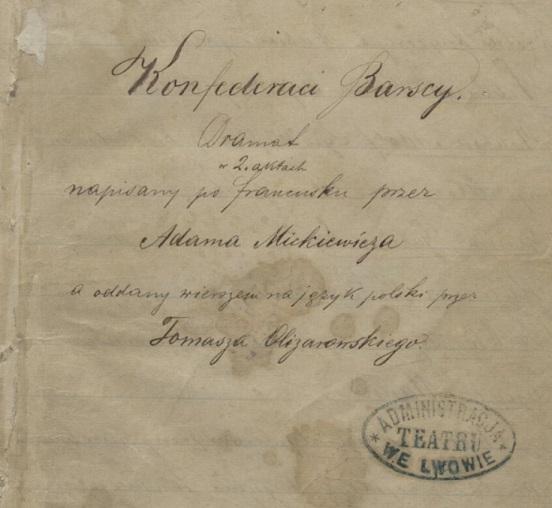 Konfederaci Barscy.
Dramat
w 2. aktach
napisany po francusku przez
Adama Mickiewicza
a oddany wierszem na język polski przez
Tomasza Olizarowskiego.
* ADMINISTRACJA *
TEATRU
WE LWOWIE